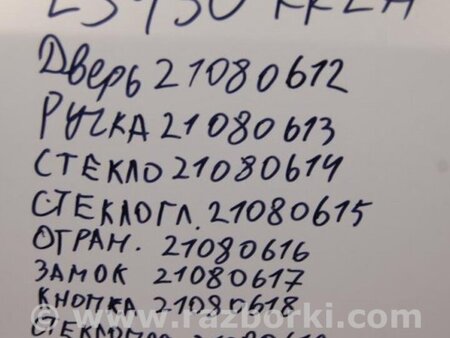 Дверь 21080612
РУЧКА 21080613
СТЕКЛО 21080614
СТЕКЛОГЛ. 21080615
ОГРАН. 21080616
ЗАМОК 21080617
КНОПКА 21080618
www.razborki.com